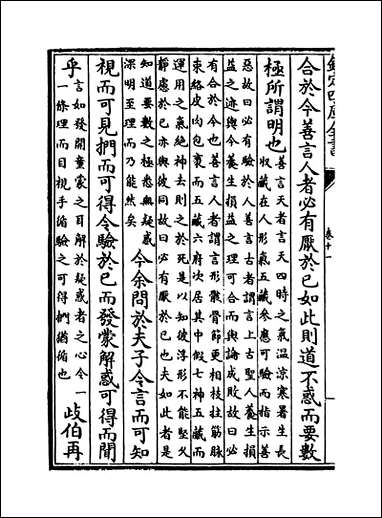 欽定四庫全書
卷十一
合於今善言人者必有厭於已如此則道不惑而要數
極所謂明也
善言天者言天四時之氣温涼寒暑生長
收藏在人形氣五藏參應可驗而指示善
惡故曰必有驗於人善言古者謂言上古聖人養生損
益之迹與今養生損益之理可合而與論成敗故曰必
有合於今也善言人者謂言形骸骨節更相枝拄筋脉
束絡皮肉包裹而五藏六府次居其中假七神五藏而
運用之氣絶神去則之於死是以知彼浮形不能堅久
靜慮於已亦與彼同故曰必有厭於已也夫如此者是
知道要數之極悉無疑惑
深明至理而乃能然矣
今余問於夫子令言而可知
視而可見捫而可得令驗於已而發蒙解惑可得而聞
乎
言如發開童蒙之耳解於疑惑者之心令一
一條理而目視手循驗之可得捫猶循也
岐伯再